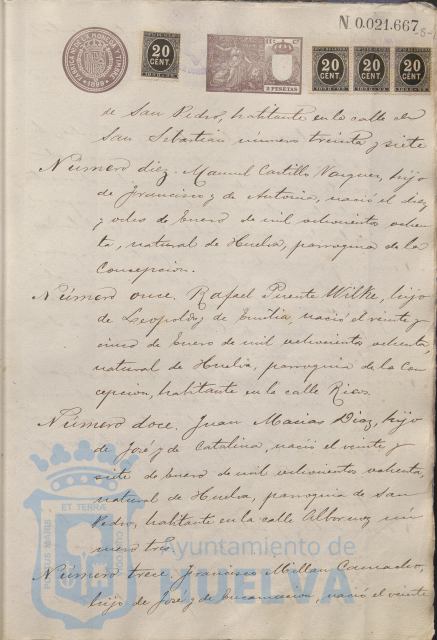 N 0.021.667
FABRICA NACIONAL DE LA MONEDA Y TIMBRE
1899
20
CENT.
2 PESETAS
20
CENT.
20
CENT.
20
CENT.
de San Pedro, habitante en la calle de
San Sebastian número treinta y siete
Número diez. Manuel Castillo Vazquez, hijo
de Francisco y de Antonia, nació el diez
y ocho de Enero de mil ochocientos ochen
ta, natural de Huelva, parroquia de la
Concepcion.
Número once. Rafael Puente Wilke, hijo
de Leopoldo y de Emilia, nació el veinte y
cinco de Enero de mil ochocientos ochenta,
natural de Huelva, parroquia de la Con
cepcion, habitante en la calle Ricos.
Número doce. Juan Macias Diaz, hijo
de José y de Catalina, nació el veinte y
siete de Enero de mil ochocientos ochenta,
natural de Huelva, parroquia de San
Pedro, habitante en la calle Albornoz nú
mero tres.
Número trece. Francisco Millan Camacho,
hijo de José y de Encarnacion, nació el veinte
ET TERRA
PORTUS MARIS
CUSTODIA
Ayuntamiento de
HUELVA